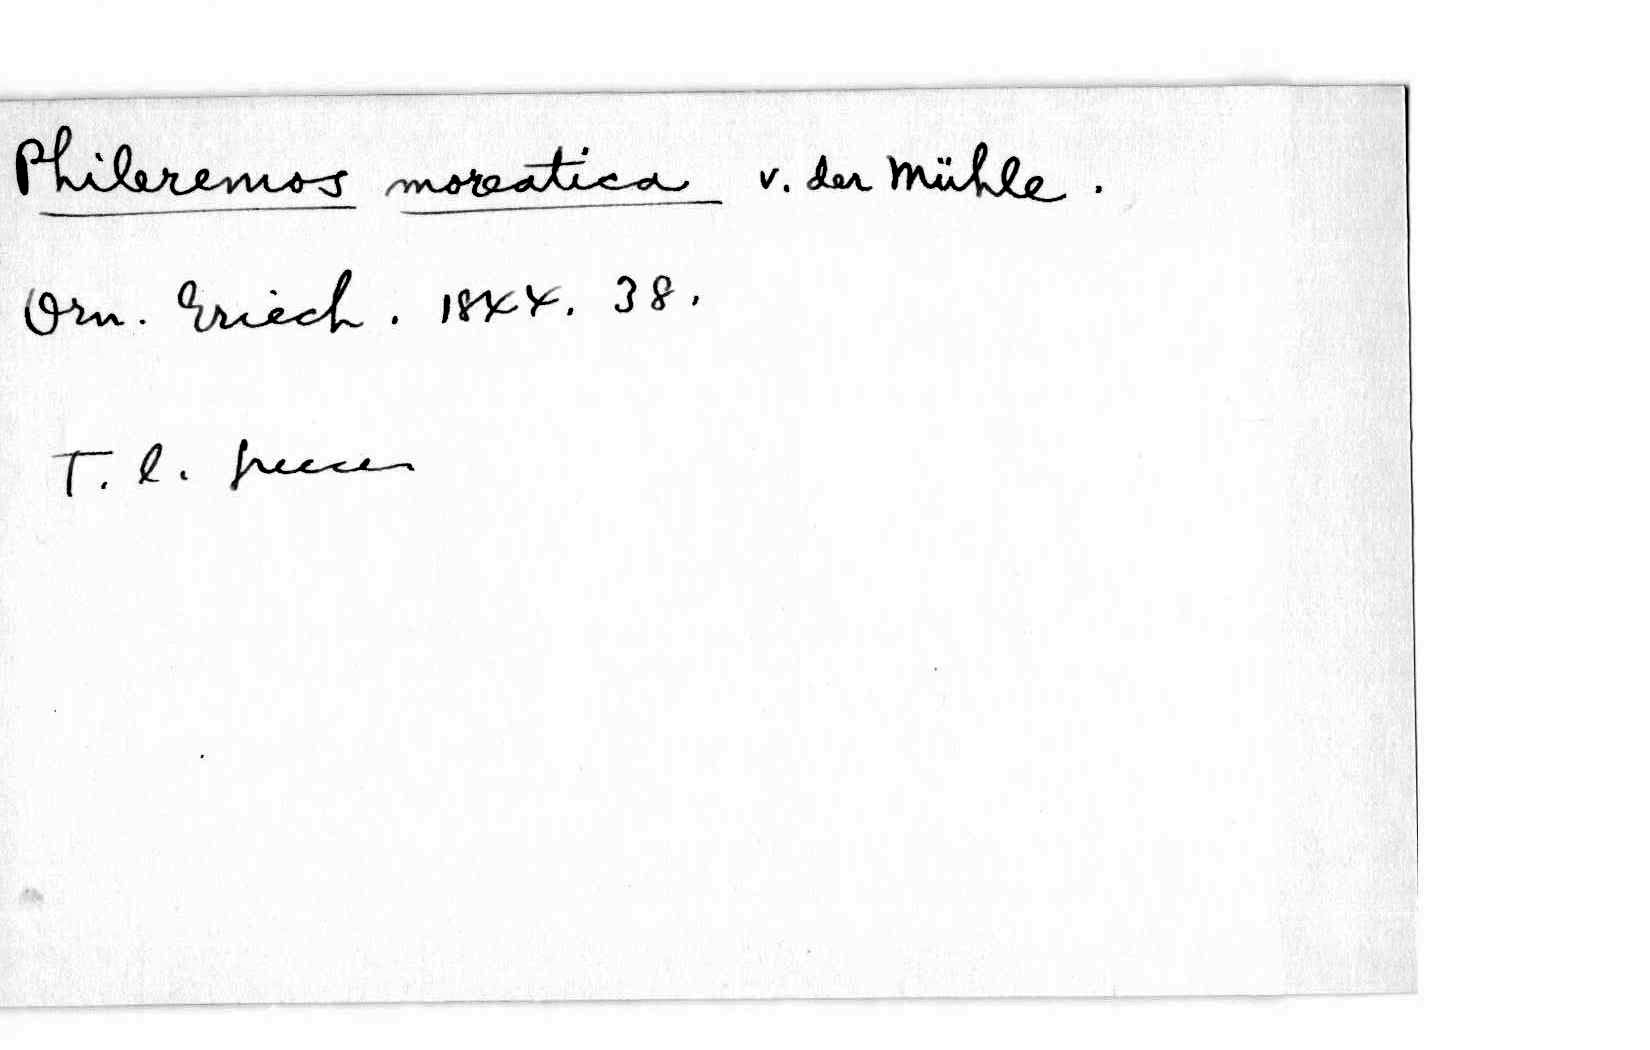 Phileremos moreatica v. der Mühle.
Orn. Griech. 1844. 38.
T. l. Greece